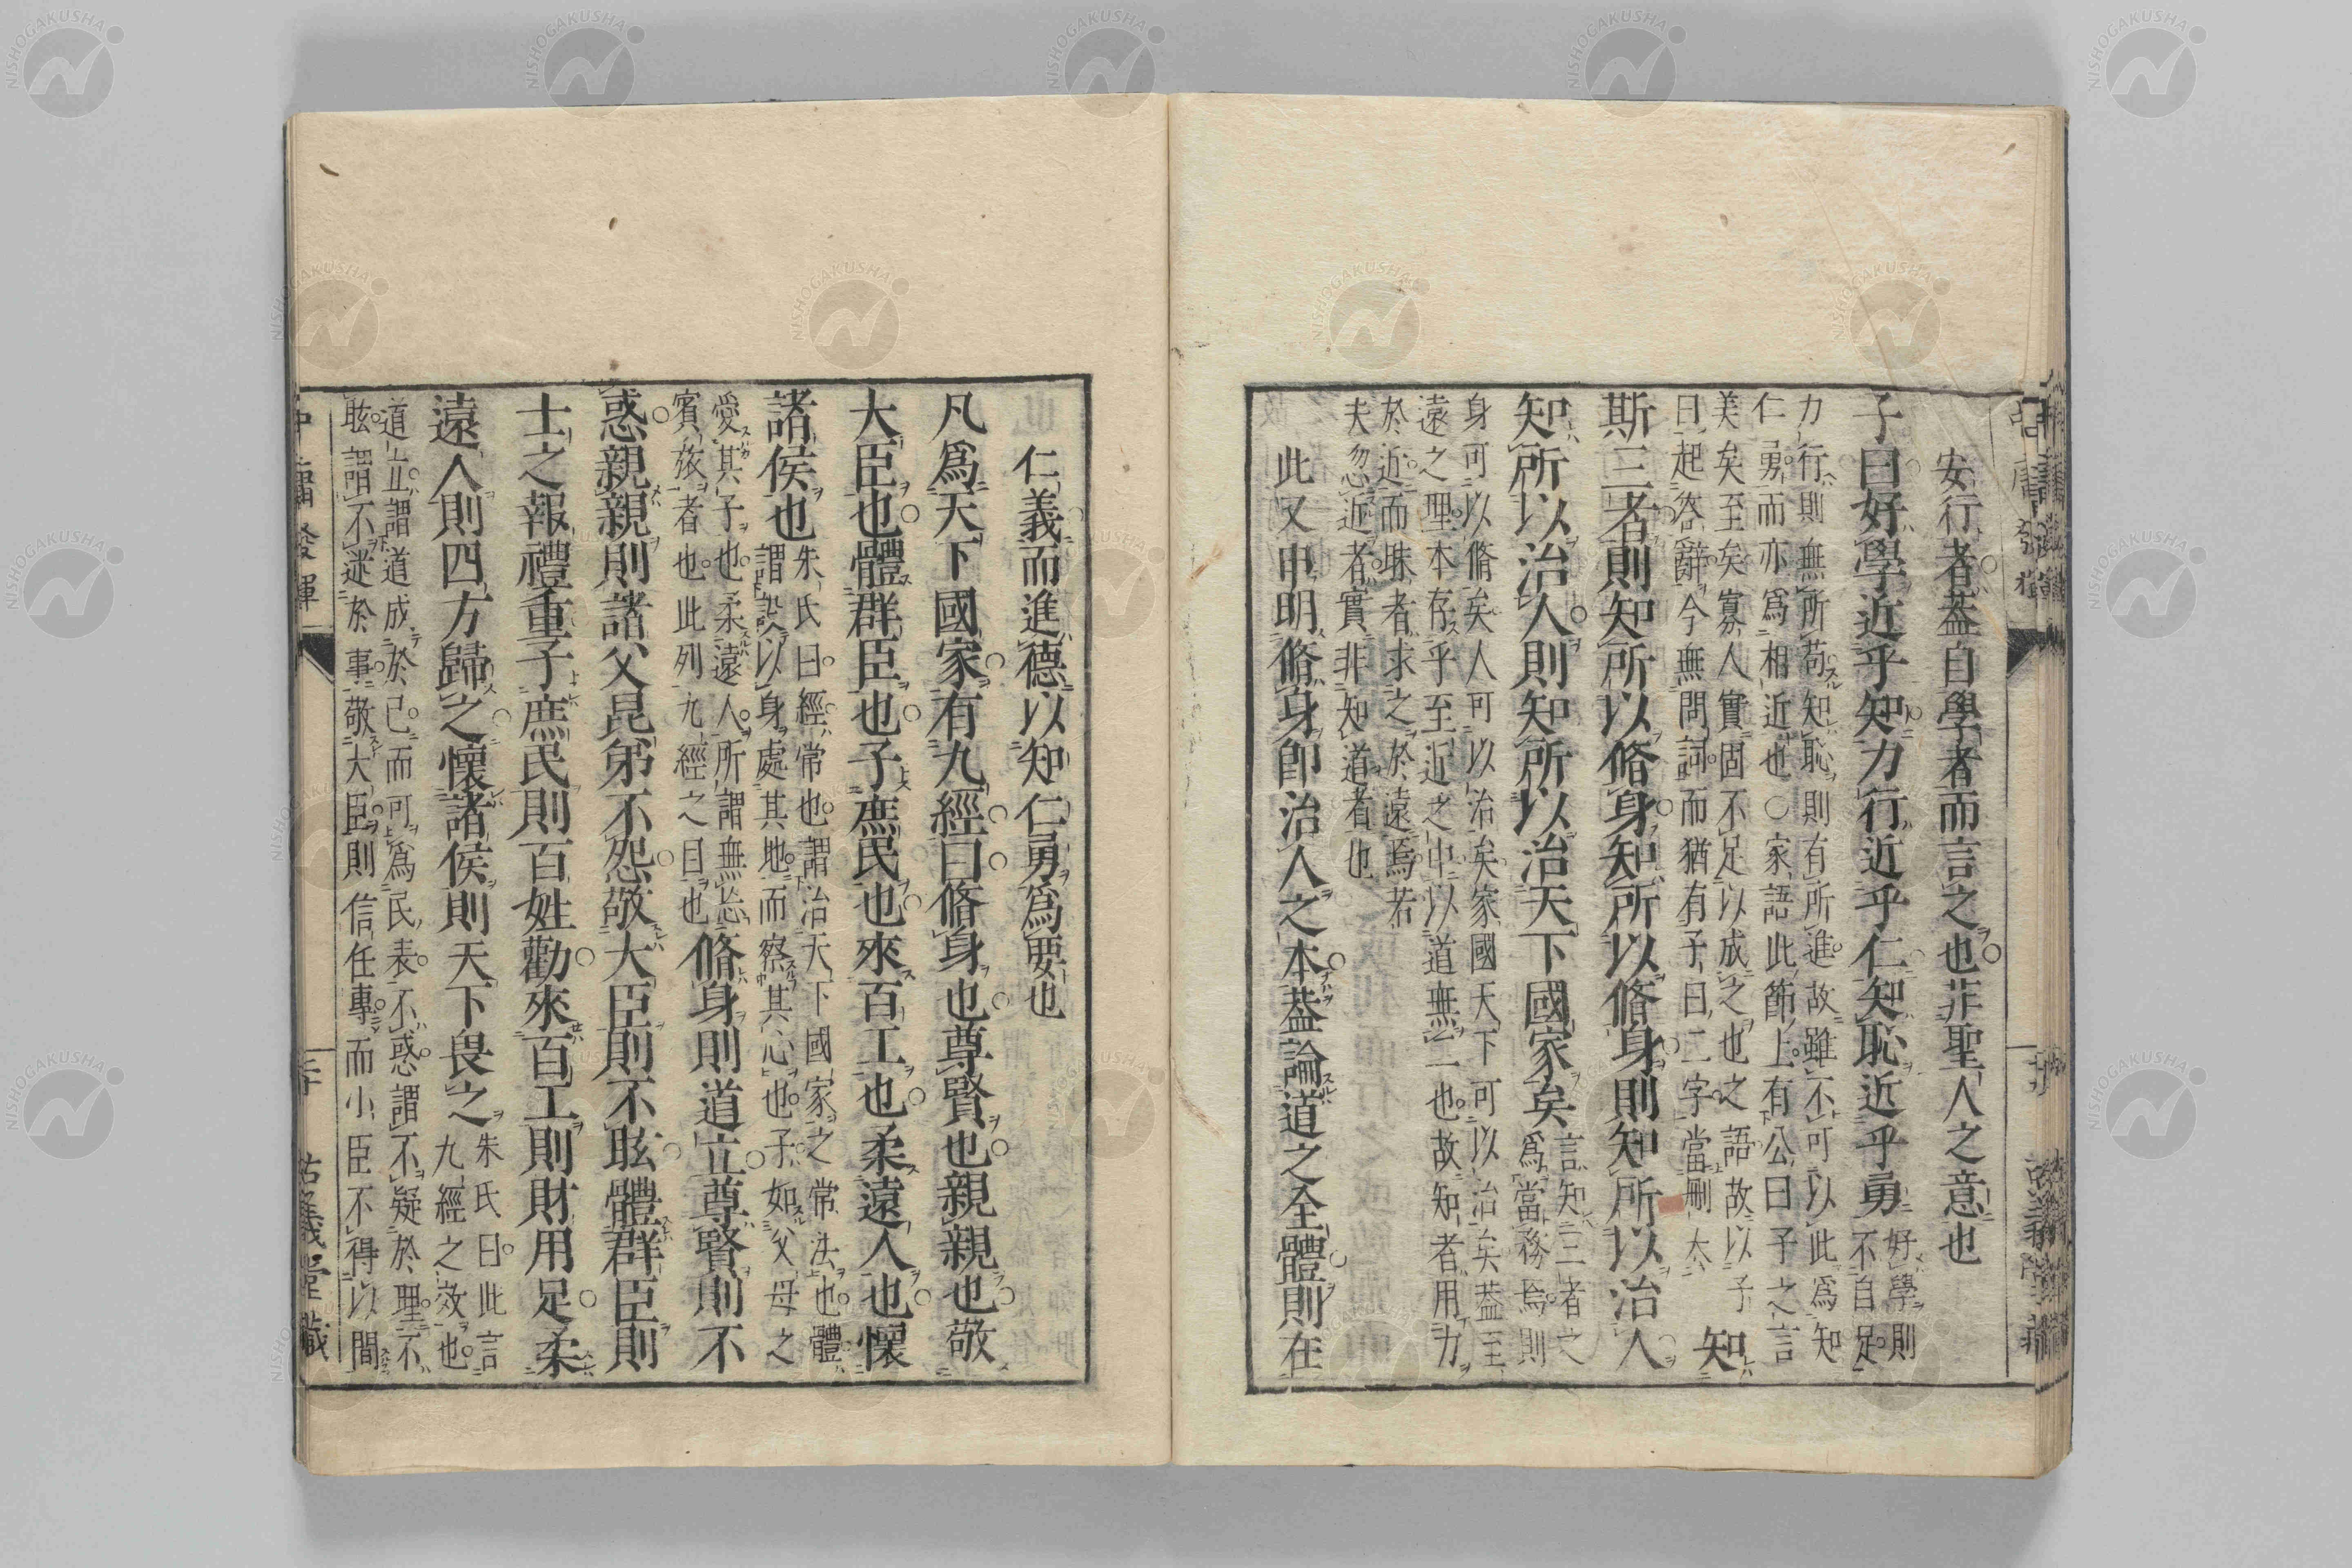 安行者葢自學者而言之也非聖人之意也
子曰好學近乎知力行近乎仁知恥近乎勇
好學則
不自足
力行則無所苟知恥則有所進故雖不可以此爲知
仁勇而亦爲相近也○家語此節上有公曰子之言
美矣至矣寡人實固不足以成之也之語故以子
曰起答辭今無問詞而猶有子曰二字當刪去
知
斯三者則知所以脩身知所以脩身則知所以治人
知所以治人則知所以治天下國家矣
言知三者之
爲當務焉則
身可以脩矣人可以治矣家國天下可以治矣葢至
遠之理本存乎至近之中以道無二也故知者用力
於近而昧者求之於遠焉若
夫忽近者實非知道者也
此又申明脩身即治人之本葢論道之全體則在
仁義而進德以知仁勇爲要也
凡爲天下國家有九經曰脩身也尊賢也親親也敬
大臣也體群臣也子庶民也來百工也柔遠人也懷
諸侯也
朱氏曰經常也謂治天下國家之常法也體
謂設以身處其地而察其心也子如父母之
愛其子也柔遠人所謂無忘
賓旅者也此列九經之目也
脩身則道立尊賢則不
惑親親則諸父昆弟不怨敬大臣則不眩體群臣則
士之報禮重子庶民則百姓勸來百工則財用足柔
遠人則四方歸之懷諸侯則天下畏之
朱氏曰此言
九經之效也
道立謂道成於己而可爲民表不惑謂不疑於理不
眩謂不迷於事敬大臣則信任專而小臣不得以間
中庸發揮
二十
古義堂藏
NISHOGAKUSHA